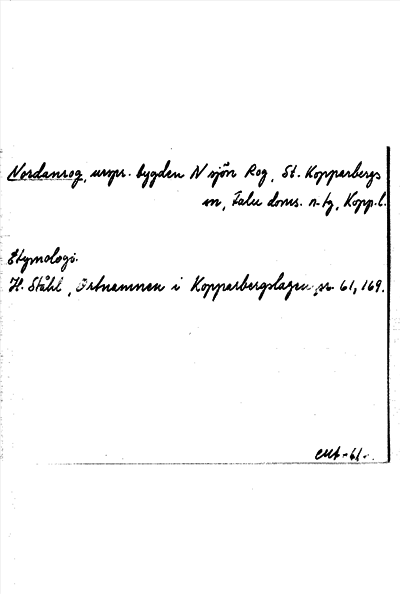 Nordanrog, urspr. bygden N sjön Rog, St. Kopparbergs
sn, Falu doms. n. tg, Kopp. l.
Etymologi.
H. Ståhl, Ortnamnen i Kopparbergslagen, s. 61, 169.
-61-